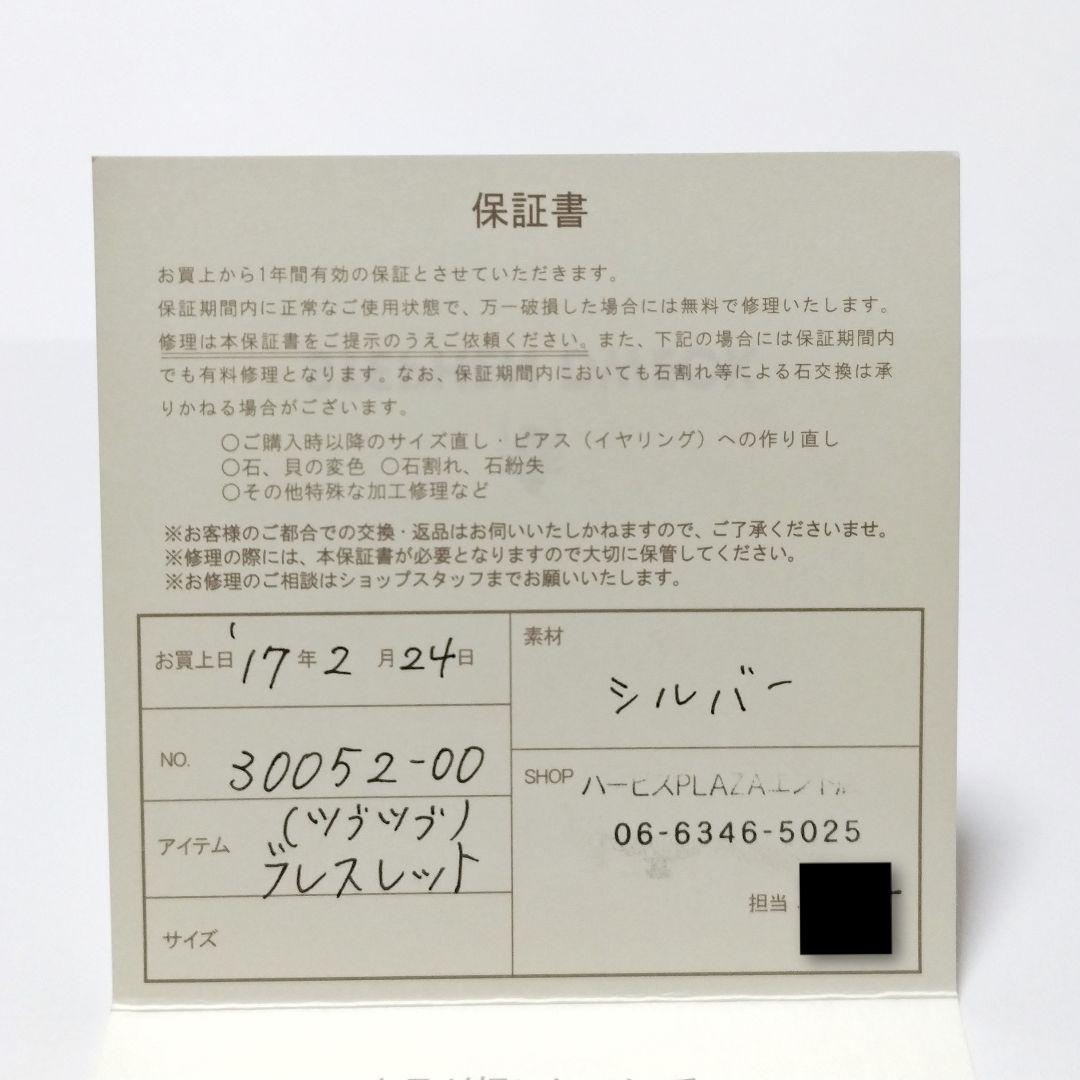 保証書
お買上から1年間有効の保証とさせていただきます。
保証期間内に正常なご使用状態で、万一破損した場合には無料で修理いたします。
修理は本保証書をご提示のうえご依頼ください。また、下記の場合には保証期間内
でも有料修理となります。なお、保証期間内においても石割れ等による石交換は承
りかねる場合がございます。
○ご購入時以降のサイズ直し・ピアス（イヤリング）への作り直し
○石、貝の変色 ○石割れ、石紛失
○その他特殊な加工修理など
※お客様のご都合での交換・返品はお伺いいたしかねますので、ご了承くださいませ。
※修理の際には、本保証書が必要となりますので大切に保管してください。
※お修理のご相談はショップスタッフまでお願いいたします。
お買上日 '17年2月24日
NO. 30052-00
アイテム (ツヴツヴ)
ブレスレット
サイズ
素材
シルバー
SHOP ハービスPLAZAエント
06-6346-5025
担当